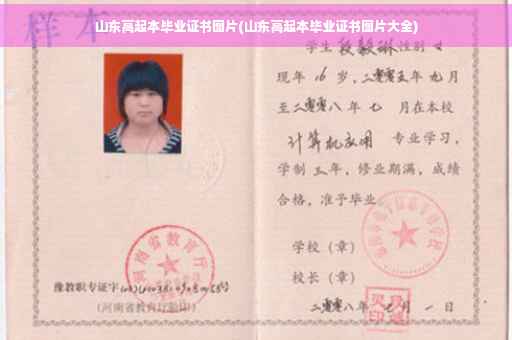 山东高起本毕业证书图片(山东高起本毕业证书图片大全)
样本
学生 段毅琳 性别 女
现年 16 岁，二零零五年 九 月
至二零零八年 七 月在本校
计算机应用 专业学习，
学制 三 年，修业期满，成绩
合格，准予毕业
学校（章）
校长（章）
二零零八年 七 月 一 日
河南省教育厅
豫教职专证字
(河南省教育厅验印)